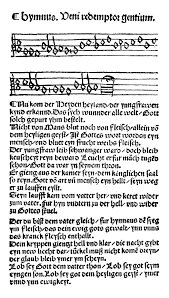 Hymnus. Veni redemptor gentium.
Nu kom der Heyden heyland/ der yungfrawen
kynd erkannd. Das sych wunnder alle welt/ Gott
solch gepurt yhm bestelt.
Nicht von Mans blut noch von fleisch/ allein võ
dem heyligen geyst/ Ist Gottes wort worden eyn
mensch/ vnd bluet eyn frucht weybs fleisch.
Der yungfraw leib schwanger ward/ doch bleib
keuscheyt reyn beward/ Leucht erfur mãch tugẽt
schon/ Gott da war yn seynem thron.
Er gieng aus der kamer seyn/ dem königlichen saal
so reyn. Gott võ art vñ mensch eyn hellt/ seyn weg
er zu lauffen eylt.
Seyn lauff kam vom vatter her/ vnd keret wider
zum vater/ fur hyn vndtern zu der hell/ vnd wider
zu Gottes stuel.
Der du bist dem vater gleich/ fur hynnaus dẽ syeg
ym fleisch/ das dein ewig gots gewalt/ ynn vnns
das kranck fleysch enthallt.
Dein krippen glentzt hell vnd klar/ die nacht gybt
eyn new liecht dar/ tunckel muß nicht komen dreyn
der glaub bleib ymer ym scheyn.
Lob sey Got dem vatter thon/ Lob sey got seym
eyngen son/ Lob sey got dem heyligen geyst/ ymer
vnnd yn ewigkeyt.